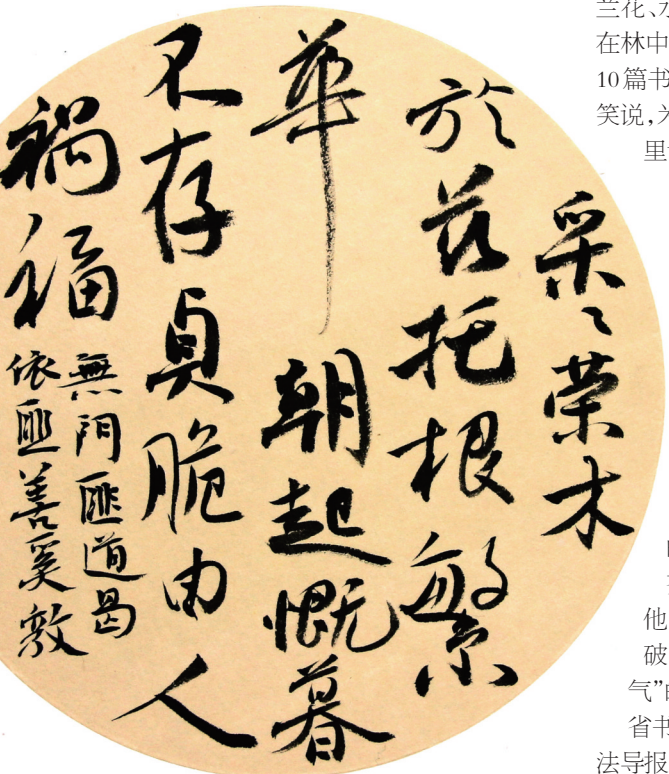 采〻荣木
於兹托根繁
華 朝起慨暮
不存貞脆由人
禍福
無門匪道曷
依匪善奚敦
兰花、
在林中
10篇书
笑说,
里
他
破
气”
省书
法导报